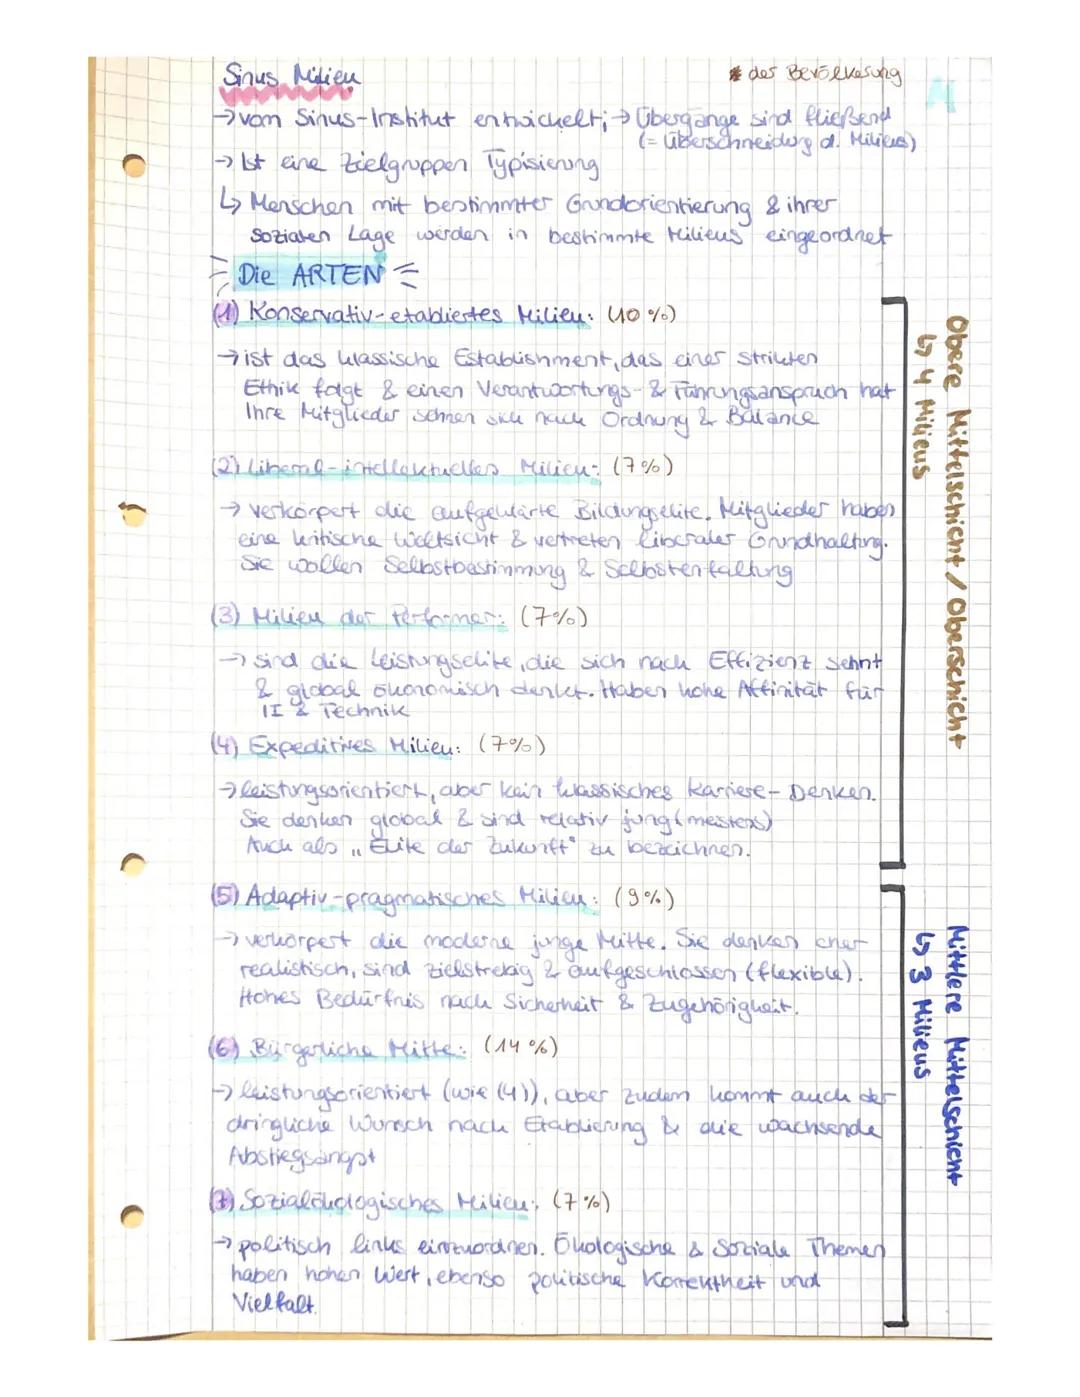 Sinus Milieu
* der Bevölkerung
→ vom Sinus-Institut entwickelt; → Übergänge sind fließend
(= Überschneidung d. Milieus)
→ Ist eine Zielgruppen Typisierung
↳ Menschen mit bestimmter Grundorientierung & ihrer
sozialen Lage werden in bestimmte Milieus eingeordnet
Die ARTEN
(1) Konservativ-etabliertes Milieu: (10%)
→ ist das klassische Establishment, das einer strikten
Ethik folgt & einen Verantwortungs- & Führungsanspruch hat
Ihre Mitglieder sehnen sich nach Ordnung & Balance
(2) Liberal-intellektuelles Milieu: (7%)
→ verkörpert die aufgeklärte Bildungselite. Mitglieder haben
eine kritische Weltsicht & vertreten liberaler Grundhaltung.
Sie wollen Selbstbestimmung & Selbstentfaltung
(3) Milieu der Performer: (7%)
→ sind die Leistungselite, die sich nach Effizienz sehnt
& global ökonomisch denkt. Haben hohe Affinität für
IT & Technik
(4) Expeditives Milieu: (7%)
→ leistungsorientiert, aber kein klassisches Karriere-Denken.
Sie denken global & sind relativ jung (meistens)
Auch als „Elite der Zukunft" zu bezeichnen.
Obere Mittelschicht / Oberschicht
↳ 4 Milieus
(5) Adaptiv-pragmatisches Milieu: (9%)
→ verkörpert die moderne junge Mitte. Sie denken eher
realistisch, sind zielstrebig & aufgeschlossen (flexible).
Hohes Bedürfnis nach Sicherheit & Zugehörigkeit.
(6) Bürgerliche Mitte: (14%)
→ leistungsorientiert (wie (4)), aber zudem kommt auch der
dringliche Wunsch nach Etablierung & die wachsende
Abstiegsangst
(7) Sozialökologisches Milieu: (7%)
→ politisch links einzuordnen. Ökologische & Soziale Themen
haben hohen Wert, ebenso politische Korrektheit und
Vielfalt.
Mittlere Mittelschicht
↳ 3 Milieus